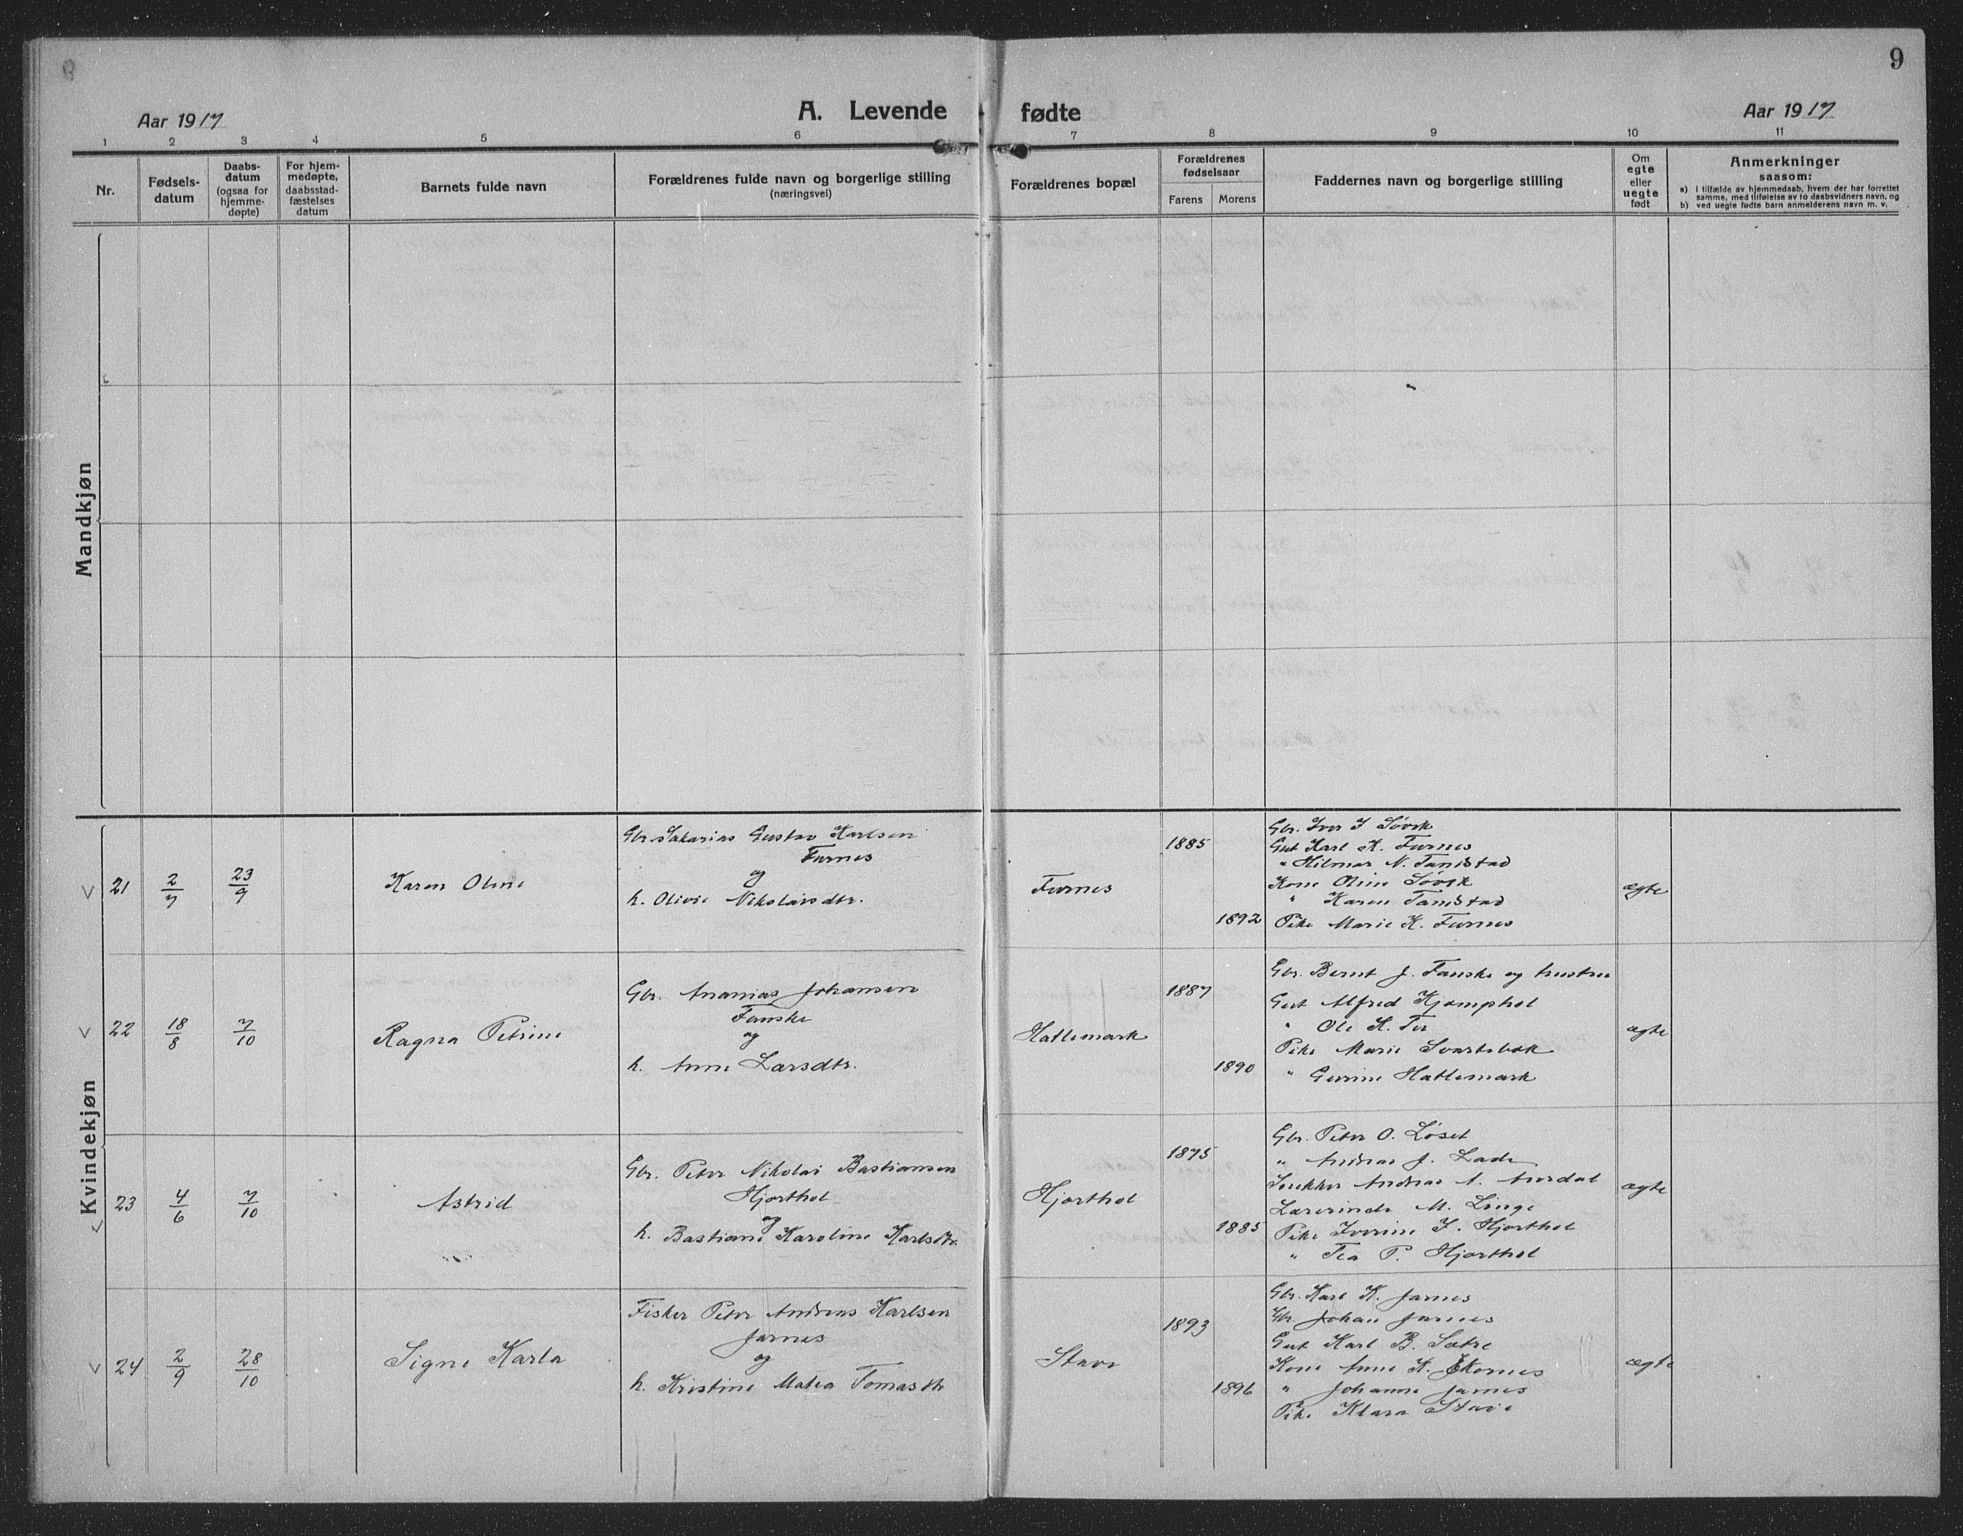 9
Aar 1917
A. Levende fødte
Aar 1917
1 2 3 4 5 6 7 8 9 10 11
Nr.
Fødsels-
datum
Daabs-
datum
(ogsaa for
hjemme-
døpte)
For hjem-
medøpte,
daabsstad-
fæstelses
datum
Barnets fulde navn
Forældrenes fulde navn og borgerlige stilling
(næringsvei)
Forældrenes bopæl
Forældrenes
fødselsaar
Farens Morens
Faddernes navn og borgerlige stilling
Om
egte
eller
uegte
født
Anmerkninger
saasom:
a) I tilfælde av hjemmedaab, hvem der har forrettet
samme, med tilføielse av to daabsvidners navn, og
b) ved uegte fødte barn anmelderens navn m. v.
Mandkjøn
Kvindekjøn
21 2/7 23/9
Karen Oline
Gbr. Sakarias Gustav Karlsen
Furnes
og
h. Olivie Nikolaisdtr.
Furnes
1885
1892
Gbr. Iver I Søvik
Gut Karl K. Furnes
" Hilmar N. Tandstad
Kone Oline Søvik
" Karen Tandstad
Pike Marie K. Furnes
ægte
22 18/8 7/10
Ragna Petrine
Gbr. Ananias Johansen
Fauske
og
h. Anne Larsdtr.
Hatlemark
1887
1890
Gbr. Bernt J. Fauske og hustru
Gut Alfred Kjemphol
" Ole K.
Pike Marie Svartebæk
" Gurine Hatlemark
ægte
23 4/6 7/10
Astrid
Gbr. Peter Nikolai Bastiansen
Hjorthol
og
h. Bastiane Karoline Karlsdtr.
Hjorthol
1875
1885
Gbr. Peter O. Løset
" Andreas J. Lade
Snekker Andreas A. Aurdal
Lærerinde M. Linge
Pike Iverine I. Hjorthol
" Tea P. Hjorthol
ægte
24 2/9 28/10
Signe Karla
Fisker Peter Andreas Karlsen
Jarnes
og
h. Kristine Matea Tomasdtr
Stave
1893
1896
Gbr. Karl K. Jarnes
Gbr Johan Jarnes
Gut Karl B. Sætre
Kone Anne K. Ekornes
" Johanne Jarnes
Pike Klara Stave
ægte